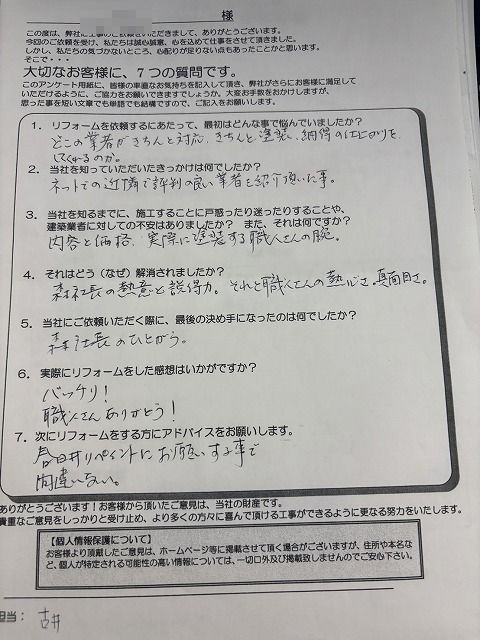 様
この度は、弊社に工事のご依頼をいただきまして、ありがとうございます。
今回のご依頼を受け、私たちは誠心誠意、心を込めて仕事をさせて頂きました。
しかし、私たちの気づかないところ、心配りが足りない点もあったことかと思います。
そこで・・・
大切なお客様に、７つの質問です。
このアンケート用紙に、皆様の率直なお気持ちを記入して頂き、弊社がさらにお客様に満足して
いただけるように、ご協力をお願いできますでしょうか。大変お手数をおかけしますが、
思った事を短い文章でも単語でも結構ですので、ご記入をお願いします。
１．リフォームを依頼するにあたって、最初はどんな事で悩んでいましたか？
どこの業者がきちんと対応、きちんと塗装、納得の仕上りを、
してくれるのか。
２．当社を知っていただいたきっかけは何でしたか？
ネットでの近隣で評判の良い業者を紹介頂いた事。
３．当社を知るまでに、施工することに戸惑ったり迷ったりすることや、
建築業者に対しての不安はありましたか？　また、それは何ですか？
内容と価格、実際に塗装する職人さんの腕。
４．それはどう（なぜ）解消されましたか？
森社長の熱意と説得力。それと職人さんの熱心さ。真面目さ。
５．当社にご依頼いただく際に、最後の決め手になったのは何でしたか？
森社長のひとがら。
６．実際にリフォームをした感想はいかがですか？
バッチリ！
職人さんありがとう！
７．次にリフォームをする方にアドバイスをお願いします。
春日井リペイントにお願いする事で
間違いない。
ありがとうございます！お客様から頂いたご意見は、当社の財産です。
貴重なご意見をしっかりと受け止め、より多くの方々に喜んで頂ける工事ができるように更なる努力をいたします。
【個人情報保護について】
お客様より頂戴したご意見は、ホームページ等に掲載させて頂く場合がございますが、住所や本名な
ど、個人が特定される可能性の高い情報については、一切口外及び掲載致しませんのでご安心下さい。
担当：古井